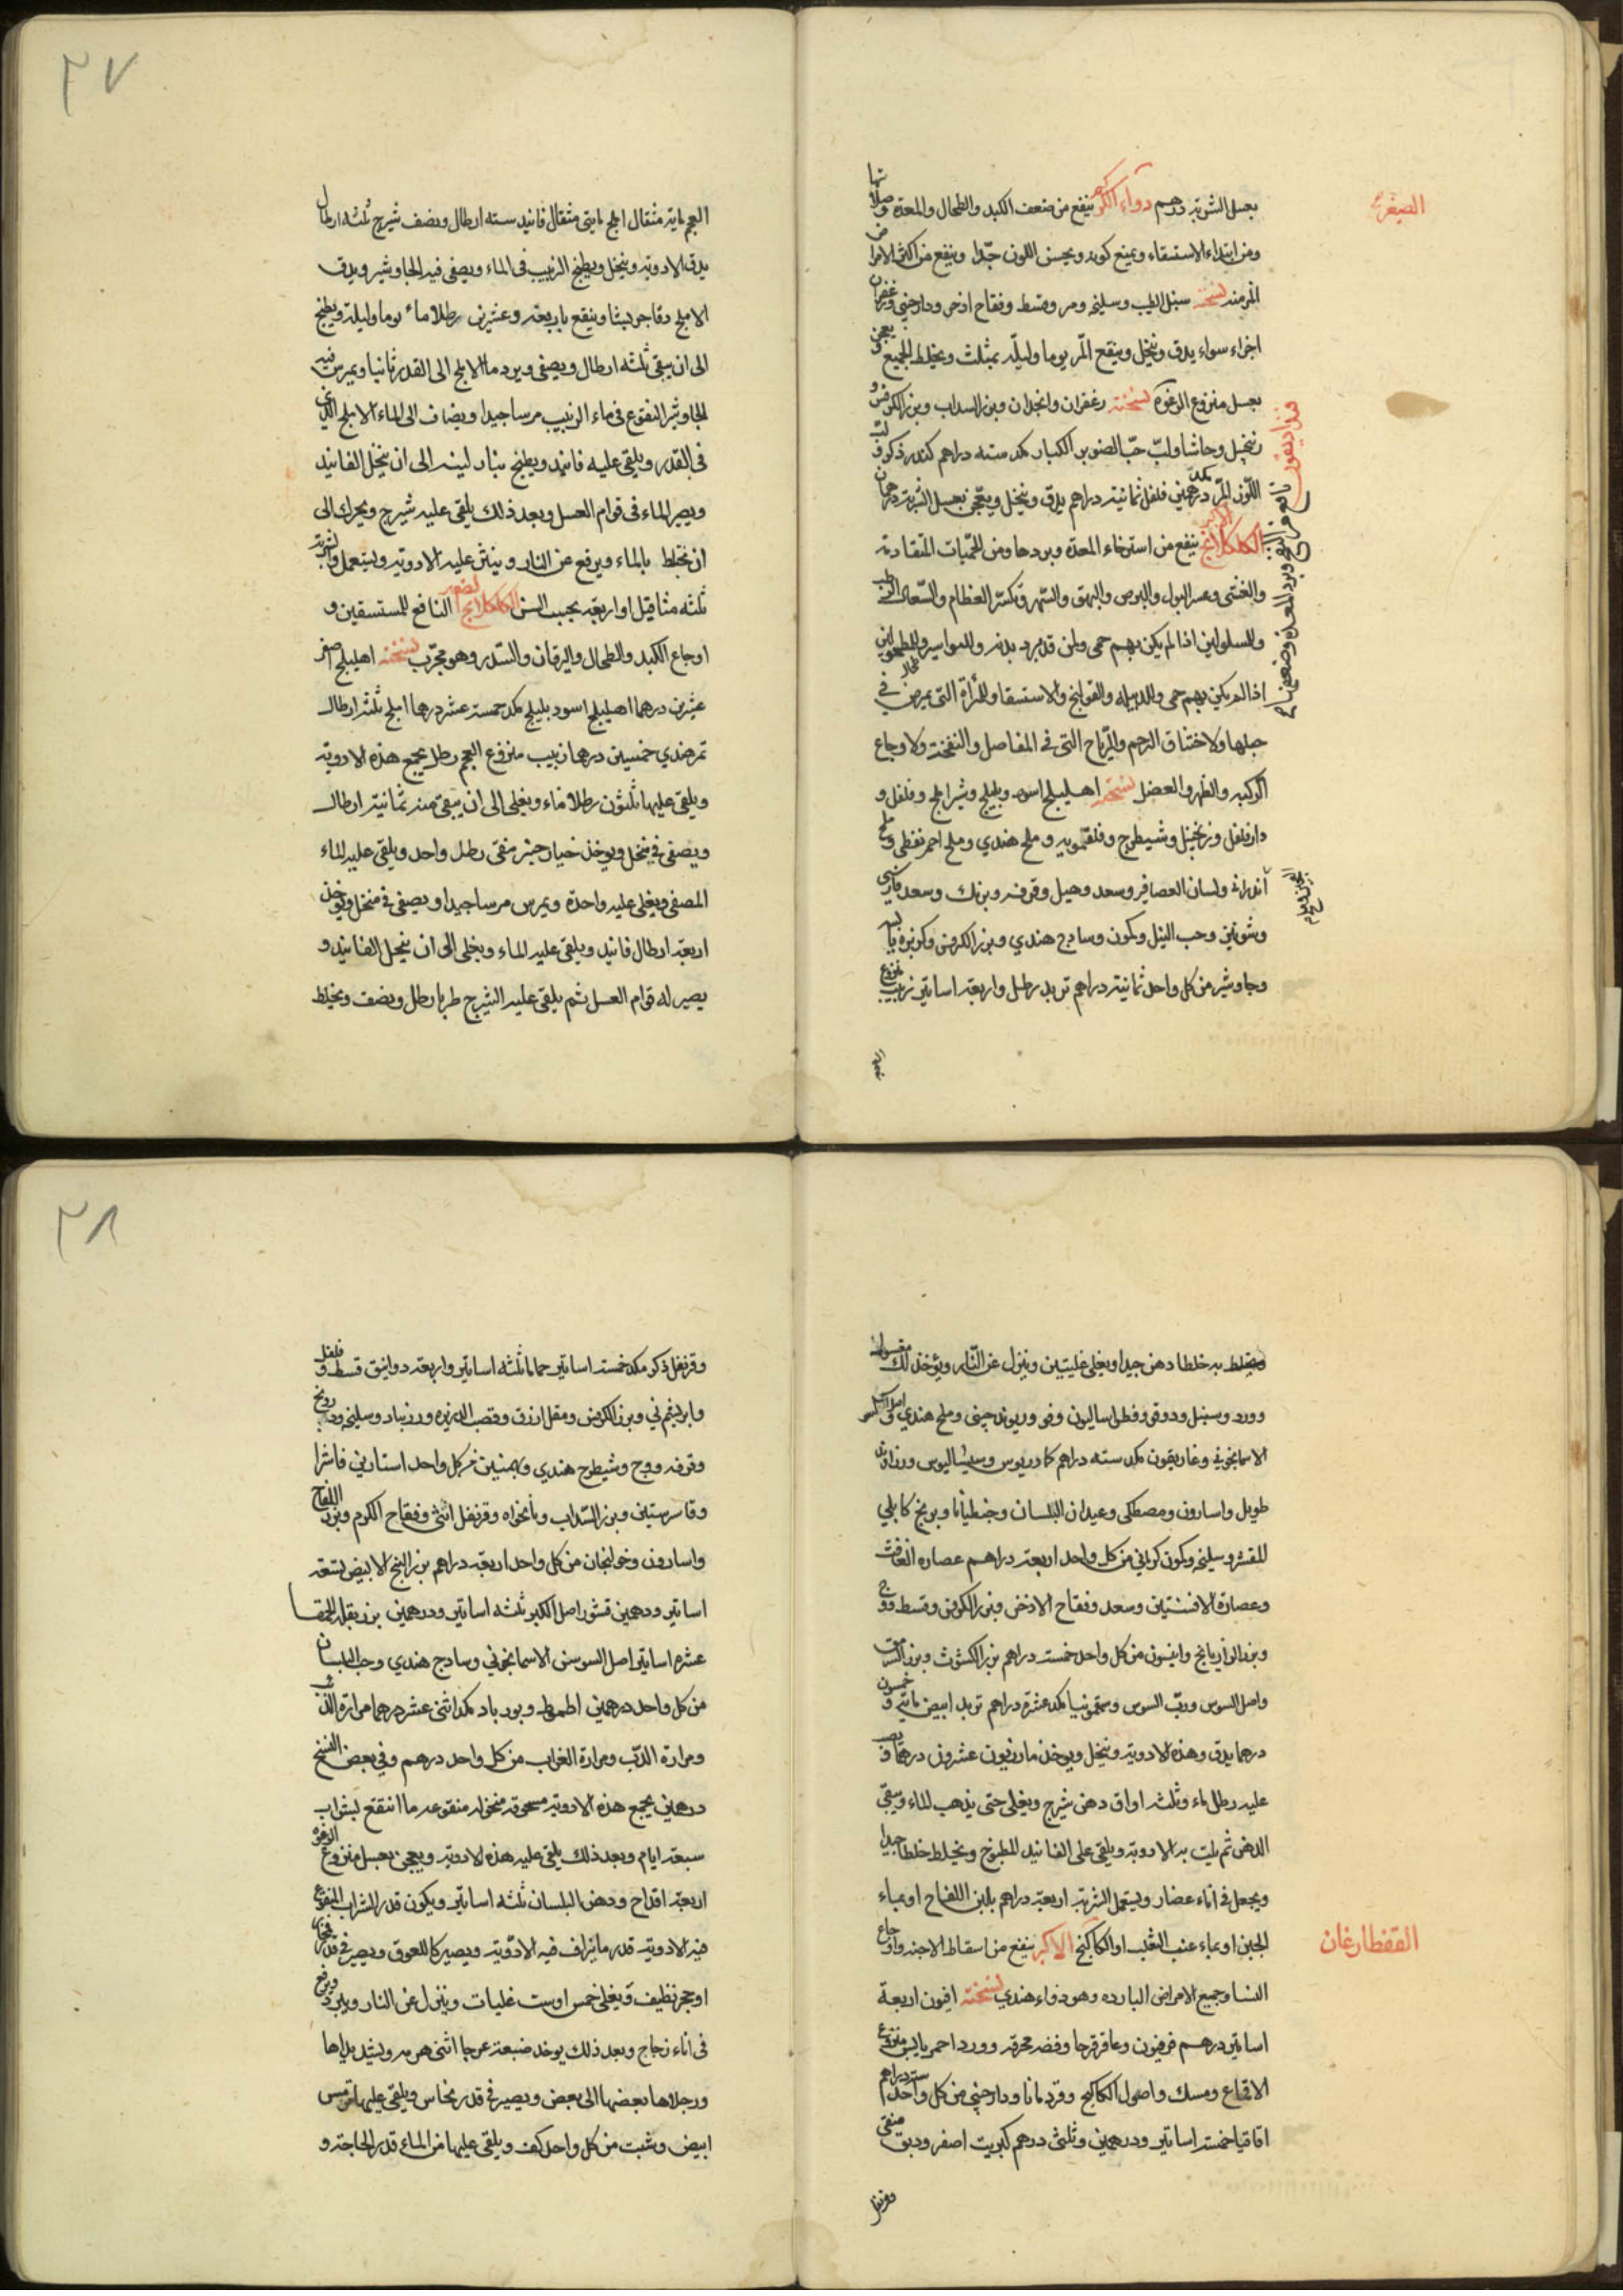 الصغرى
بعسل الشربة درهم دواء الكركم ينفع من ضعف الكبد والطحال والمعدة وصلابتها
ومن ابتداء الاستسقاء ويمنع كونه ويحسن اللون جدّا وينفع من اكثر الامراض
المزمنه نسخته سنبل الطيب وسليخه ومر وقسط وفقاح اذخر ودارصيني وزعفران
اجزاء سواء يدق وينخل وينقع المر يوما وليلة بمثلث ويخلط الجميع ويعجن
بعسل منزوع الرغوة نسخته زعفران وانجدان وبزر السداب وبزر الكرفس و
زنجبيل وحاشا ولبّ حبّ الصنوبر الكبار مكد ستة دراهم كندر ذكر و لبّ
اللوز المرّ مكد درهمين فلفل ثمانية دراهم يدق وينخل ويعجن بعسل الشربة درهمان
الكلكلانج الاكبر ينفع من استرخاء المعدة وبردها ومن الحميات المتقادمة
والغشى وعسر البول والبرص والبهق والسهر وتكسر العظام والسعال الرطب
وللسلولين اذا لم يكن بهم حمى ولمن قد برد بدنه وللبواسير وللمطحولين
اذا لم يكن بهم حمى وللدبيله والقولنج والاستسقا وللمرأة التى يمرض في
حبلها ولاختناق الرحم والرياح التى في المفاصل والنفخة ولاوجاع
الوركين والظهر والعضل نسخته اهليلج اسود وبليلج وشير املج وفلفل و
دار فلفل وزنجبيل وشيطرج وفلفلمويه وملح هندي وملح احمر نفطي وملح
أندرانى ولسان العصافير وسعد وهيل وقرفه وبرنك وسعد فارسي
وشونيز وحب النيل وكمون وسادج هندي وبزر الكرفس وكزبره يابسه
وجاوشير من كل واحد ثمانية دراهم تربد رطل واربعة اساتير زبيب منزوع
العجم
العجم ماية مثقال املج مايتى مثقال فانيد سته ارطال ونصف شيرج ثلثه ارطال
يدق الادوية وينخل ويطبخ الزبيب فى الماء ويصفى فيه الجاوشير ويدق
الاملج دقا جريشا وينقع باربعة وعشرين رطلا ماء يوما وليلة ويطبخ
الى ان يبقى ثلثه ارطال ويصفى ويرد ماالاملج الى القدر ثانيا ويمرس فيه
الجاوشير المنقوع فى ماء الزبيب مرسا جيدا ويضاف الى الماء الاملج الذى
فى القدر ويلقى عليه فانيد ويطبخ بنار لينه الى ان ينحل الفانيد
ويصير الماء فى قوام العسل وبعد ذلك يلقى عليه شيرج ويحرك الى
ان يختلط بالماء ويرفع عن النار وينثر عليه الادوية ويستعمل والشربة
ثلثه مثاقيل او اربعة بحسب السن الكلكلانج الصغير النافع للمستسقين و
اوجاع الكبد والطحال واليرقان والسدر وهو مجرّب نسخته اهليلج اصفر
عشرين درهما اهليلج اسود بليلج مكد خمسة عشر درهما املج ثلثه ارطال
تمر هندي خمسين درهما زبيب منزوع العجم رطل يجمع هذه الادوية
ويلقى عليها ثلثون رطلا ماء ويغلى الى ان يبقى منه ثمانية ارطال
ويصفى في منخل ويوخذ خيار چنبر منقى رطل واحد ويلقى عليه الماء
المصفى ويغلى عليه واحدة ويمرس مرسا جيدا ويصفى في منخل ويوخذ
اربعة ارطال فانيد ويلقى عليه الماء ويغلى الى ان ينحل الفانيد و
يصير له قوام العسل ثم يلقى عليه الشيرج طريا رطل ونصف ويخلط
ويخلط به خلطا دهن جيدا ويغلى غليتين وينزل عن النّار ويؤخذ لك مغسول
وورد وسنبل ودوقو وفطراساليون وفو وريوند چينى وملح هندي واصل السوسن
الاسمانجوني وغاريقون مكد ستة دراهم كمادريوس وسيساليوس وزراوند
طويل واسارون ومصطكى وعيدان البلسان وجنطيانا وبرنج كابلي
المقشر وسليخه وكمون كرماني من كل واحد اربعة دراهم عصاره الغافث
وعصارة الافسنتين وسعد وفقاح الاذخر وبزر الكرفس وقسط ووج
وبزر الرازيانج وانيسون من كل واحد خمسة دراهم بزر الكشوث وبزر السرمق
واصل السوس وربّ السوس وسقمونيا مكد عشرة دراهم تربد ابيض مايتي و خمسون
درهما يدق وهذه الادوية وينخل ويوخذ مازريون عشرون درهما ويصب
عليه رطل ماء وثلثه اواق دهن شيرج ويغلى حتى يذهب الماء ويبقى
الدهن ثم يلت به الادوية ويلقى على الفانيد المطبوخ ويخلط خلطا جيدا
ويجعل في اناء غضار ويستعمل الشربة اربعة دراهم بلبن اللقاح او بماء
القفطارغان
الجبن او بماء عنب الثعلب او الكاكنج الاكبر ينفع من اسقاط الاجنه واوجاع
النسا وجميع الامراض البارده وهو دواء هندي نسخته افيون اربعة
اساتير درهم فرفيون وعاقرقرحا وفضه محرقه وورد احمر يابس منزوع
الاقماع ومسك واصول الكاكنج وقردمانا ودارچيني من كل واحد ستة دراهم
اقاقيا خمسة اساتير ودرهمين وثلثى درهم كبريت اصفر ودبق منقى
وقرنفل
وقرنفل ذكر مكد خمسة اساتير حماما ثلثه اساتير واربعة دوانيق قسط و فلفل
وابريشم ني وبزر الكرفس ومقل ازرق وقصب الذريره وزرنباد وسليخه ودرونج
وقرفه ووج وشيطرج هندي وبهمنين من كل واحد استارني فاشرا
وفاشرستين وبزر السّداب ونانخواه وقرنفل انثى وفقاح الكرم وبزر اللفاح
واسارون وخولنجان من كل واحد اربعة دراهم بزر البنج الابيض تسعة
اساتير ودرهمين قشور اصل الكبر ثلثه اساتير ودرهمين بزر بقلة الحمقا
عشره اساتير اصل السوسن الاسمانجوني وسادج هندي وحب البلسان
من كل واحد درهمين اطموط وبورباد مكد اثنى عشر درهما مرارة الذئب
ومرارة الدبّ ومرارة الغراب من كل واحد درهم وفي بعض النسخ
درهمين يجمع هذه الادوية مسحوقة منخوله منقوعه ما انتقع لبشراب
سبعة ايام وبعد ذلك يلقى عليه هذه الادوية ويعجن بعسل منزوع الرغوه
اربعة اقداح ودهن البلسان ثلثه اساتير ويكون قدر الشراب المنقوع
فيه الادوية قدر ما يذاف فيه الادوية ويصير كاللعوق ويصير في قدر فخار
او حجر نظيف ويغلى خمس او ست غليات وينزل عن النار ويبرد ويرفع
فى اناء زجاج وبعد ذلك يوخذ ضبعة عرجا انثى هرمه ويشد يداها
ورجلاها بعضها الى بعض ويصير في قدر نحاس ويلقى عليها ترمس
ابيض وشبت من كل واحد كف ويلقى عليها من الماء قدر الحاجة و